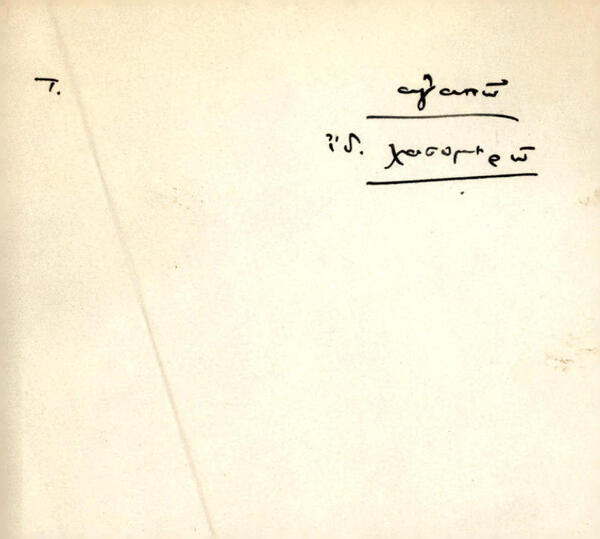 Τ. ἀγαπῶ
ἰδ. χασομερῶ